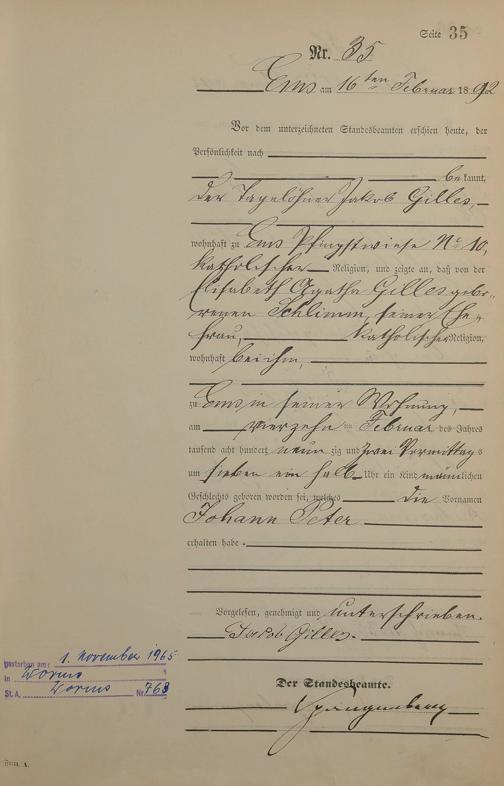 Seite 35
Nr. 35
Ems am 16ten Februar 1892
Vor dem unterzeichneten Standesbeamten erschien heute, der
Persönlichkeit nach
bekannt,
der Tagelöhner Jakob Gilles,
wohnhaft zu Ems Pfingstwiese No 10,
katholischer Religion, und zeigte an, daß von der
Elisabeth Agatha Gilles gebo-
renen Schlimm, seiner Ehe-
frau, katholischer Religion,
wohnhaft bei ihm,
zu Ems in seiner Wohnung,
am vierzehn ten Februar des Jahres
tausend acht hundert neun zig und zwei Vormittags
um sieben ein halb Uhr ein Kind männlichen
Geschlechts geboren worden sei, welches die Vornamen
Johann Peter
erhalten habe.
Vorgelesen, genehmigt und unterschrieben.
Jacob Gilles.
gestorben am: 1. november 1965
in Worms
St.A. Worms Nr. 768
Der Standesbeamte.
Form. A.